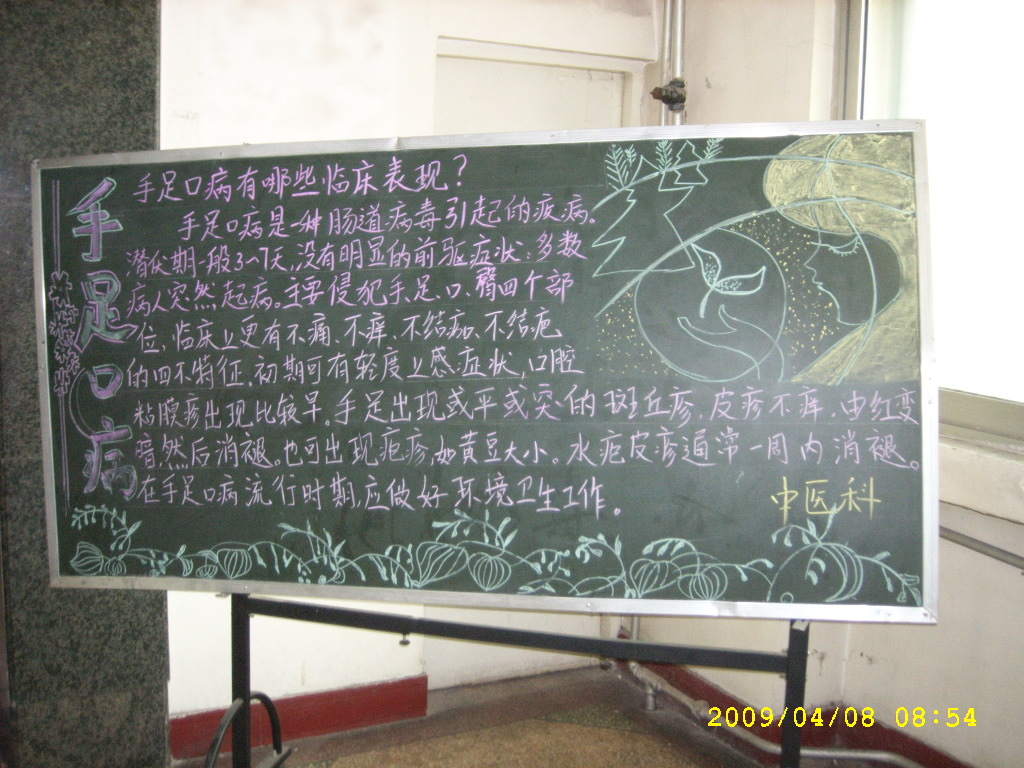 手足口病
手足口病有哪些临床表现？
手足口病是一种肠道病毒引起的疾病。
潜伏期一般3~7天，没有明显的前驱症状：多数
病人突然起病。主要侵犯手、足、口、臀四个部
位，临床上更有不痛、不痒、不结痂、不结疤
的四不特征。初期可有轻度上感症状，口腔
粘膜疹出现比较早。手足出现或平或突的斑丘疹，皮疹不痒，由红变
暗，然后消褪。也可出现疱疹，如黄豆大小。水疱皮疹通常一周内消褪。
在手足口病流行时期，应做好环境卫生工作。
中医科
2009/04/08 08:54